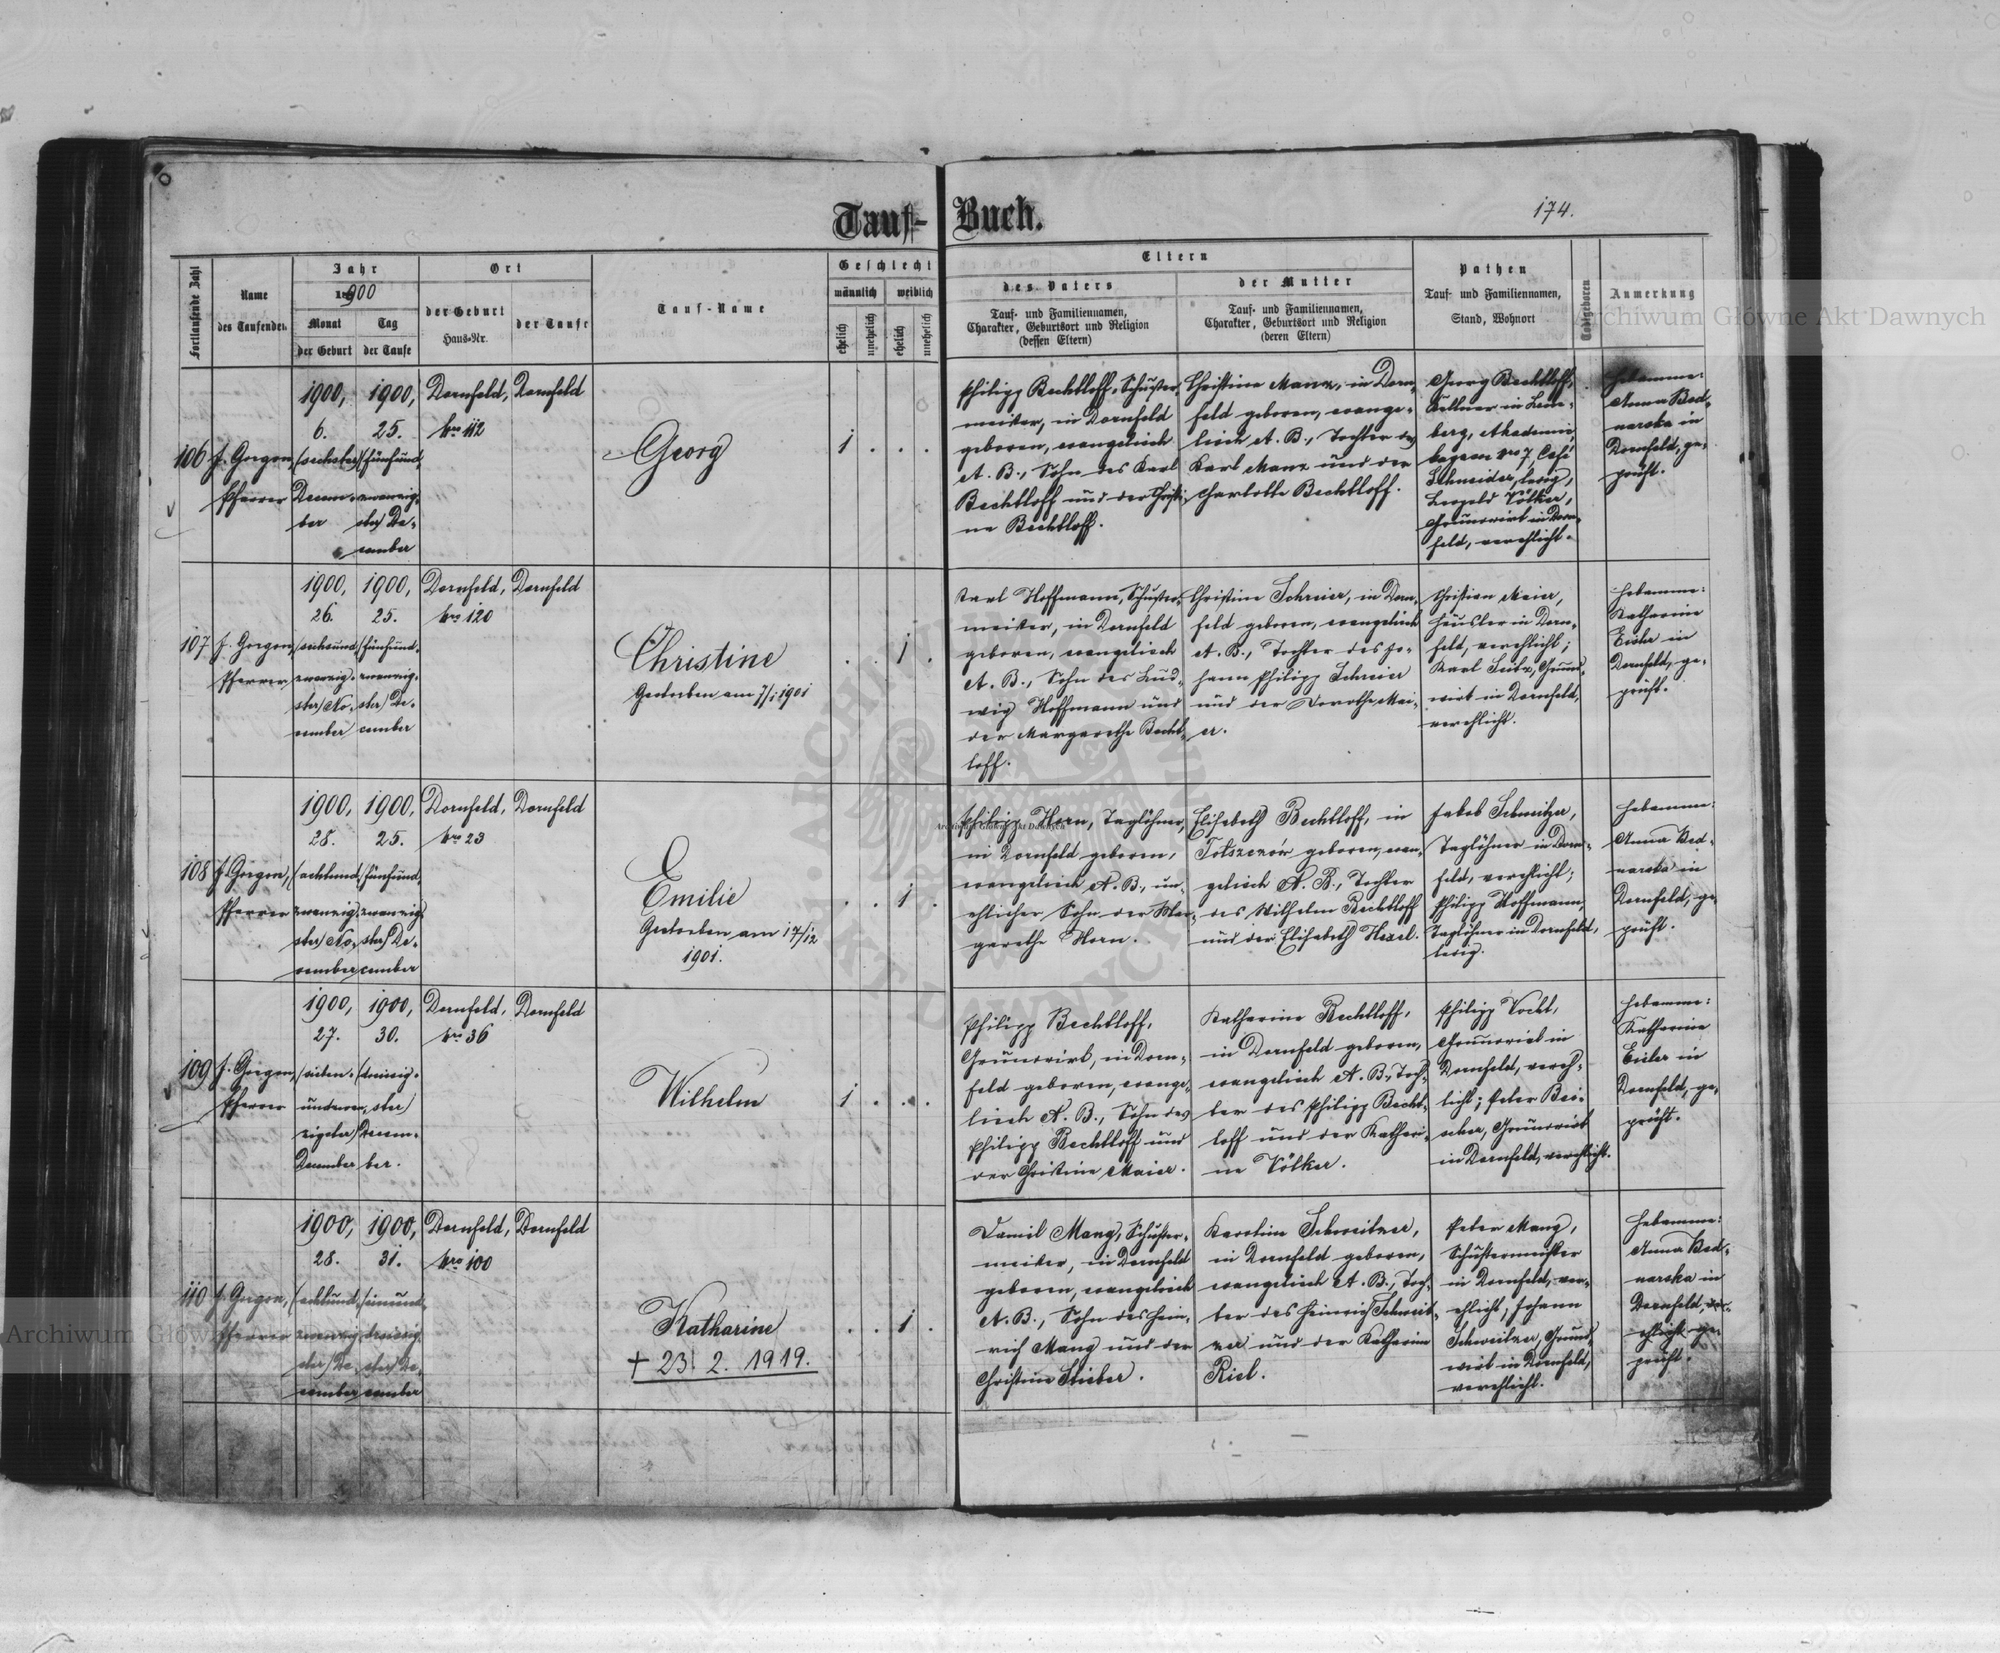 Tauf-Buch.
174.
Fortlaufende Zahl
Name
des Taufenden
Jahr
1900
Monat
Tag
der Geburt
der Taufe
Ort
der Geburt
Haus-Nr.
der Taufe
Tauf-Name
Geschlecht
männlich
weiblich
ehelich
unehelich
ehelich
unehelich
Eltern
des Vaters
Tauf- und Familiennamen,
Charakter, Geburtsort und Religion
(dessen Eltern)
der Mutter
Tauf- und Familiennamen,
Charakter, Geburtsort und Religion
(deren Eltern)
Pathen
Tauf- und Familiennamen,
Stand, Wohnort
Todtgeboren
Anmerkung
106
J. Gorgon,
Pfarrer
1900,
6.
(sechster)
Decem-
ber
1900,
25.
(fünfund-
zwanzig-
ster) De-
cember
Dornfeld,
Nro 112
Dornfeld
Georg
1 . . .
Philipp Bechtloff, Schuster-
meister, in Dornfeld
geboren, evangelisch
A. B., Sohn des Karl
Bechtloff und der Christi-
ne Bechtloff.
Christine Manz, in Dorn-
feld geboren, evange-
lisch A. B., Tochter des
Karl Manz und der
Charlotte Bechtloff.
Georg Bechtloff,
Kellner in Lem-
berg, Akademie,
Nro 7, Café
Schneider, ledig,
Leopold Völker,
Grundwirt in Dorn-
feld, verehlicht.
Hebamme:
Anna Bed-
narska in
Dornfeld, ge-
prüft.
107
J. Gorgon,
Pfarrer
1900,
26.
(sechsund-
zwanzig-
ster) No-
vember
1900,
25.
(fünfund-
zwanzig-
ster) De-
cember
Dornfeld,
Nro 120
Dornfeld
Christine
Gestorben am 7/1 1901
. . 1 .
Karl Hoffmann, Schuster-
meister, in Dornfeld
geboren, evangelisch
A. B., Sohn des Lud-
wig Hoffmann und
der Margarethe Becht-
loff.
Christine Schreier, in Dorn-
feld geboren, evangelisch
A. B., Tochter des Jo-
hann Philipp Schreier
und der Dorothe Mai-
er.
Christian Maier,
Häusler in Dorn-
feld, verehlicht;
Karl Seitz, Grund-
wirt in Dornfeld,
verehlicht.
Hebamme:
Katharine
Eisler in
Dornfeld, ge-
prüft.
108
J. Gorgon,
Pfarrer
1900,
28.
(achtund-
zwanzig-
ster) No-
vember
1900,
25.
(fünfund-
zwanzig-
ster) De-
cember
Dornfeld,
Nro 23
Dornfeld
Emilie
Gestorben am 17/12
1901.
. . 1 .
Philipp Horn, Taglöhner,
in Dornfeld geboren,
evangelisch A. B., un-
ehlicher Sohn der Mar-
garethe Horn.
Elisabeth Bechtloff, in
geboren, evan-
gelisch A. B., Tochter
des Wilhelm Bechtloff
und der Elisabeth Hexel.
Jakob Schweitzer,
Taglöhner in Dorn-
feld, verehlicht;
Philipp Hoffmann,
Taglöhner in Dornfeld,
ledig.
Hebamme:
Anna Bed-
narska in
Dornfeld, ge-
prüft.
109
J. Gorgon,
Pfarrer
1900,
27.
(sieben-
undzwan-
zigster)
December
1900,
30.
(dreissig-
ster)
Decem-
ber.
Dornfeld,
Nro 36
Dornfeld
Wilhelm
1 . . .
Philipp Bechtloff,
Grundwirt, in Dorn-
feld geboren, evange-
lisch A. B., Sohn des
Philipp Bechtloff und
der Christine Maier.
Katharine Bechtloff,
in Dornfeld geboren,
evangelisch A. B., Toch-
ter des Philipp Becht-
loff und der Kathari-
ne Völker.
Philipp Vocht,
Grundwirt in
Dornfeld, vereh-
licht; Peter Bei-
scher, Grundwirt
in Dornfeld, verehlicht.
Hebamme:
Katharine
Eisler in
Dornfeld, ge-
prüft.
110
J. Gorgon,
Pfarrer
1900,
28.
(achtund-
zwanzig-
ster) De-
cember
1900,
31.
(einund-
dreissig-
ster) De-
cember
Dornfeld,
Nro 100
Dornfeld
Katharine
+ 23. 2. 1919.
. . 1 .
Daniel Mang, Schuster-
meister, in Dornfeld
geboren, evangelisch
A. B., Sohn des Hein-
rich Mang und der
Christine Stieber.
Karoline Schweitzer,
in Dornfeld geboren,
evangelisch A. B., Toch-
ter des Heinrich Schweit-
zer und der Katharine
Riel.
Peter Mang,
Schustermeister
in Dornfeld, ver-
ehlicht; Johann
Schweitzer, Grund-
wirt in Dornfeld,
verehlicht.
Hebamme:
Anna Bed-
narska in
Dornfeld, ver-
ehlicht ge-
prüft.
Archiwum Główne Akt Dawnych
Archiwum Główne Akt Dawnych
Archiwum Główne Akt Dawnych